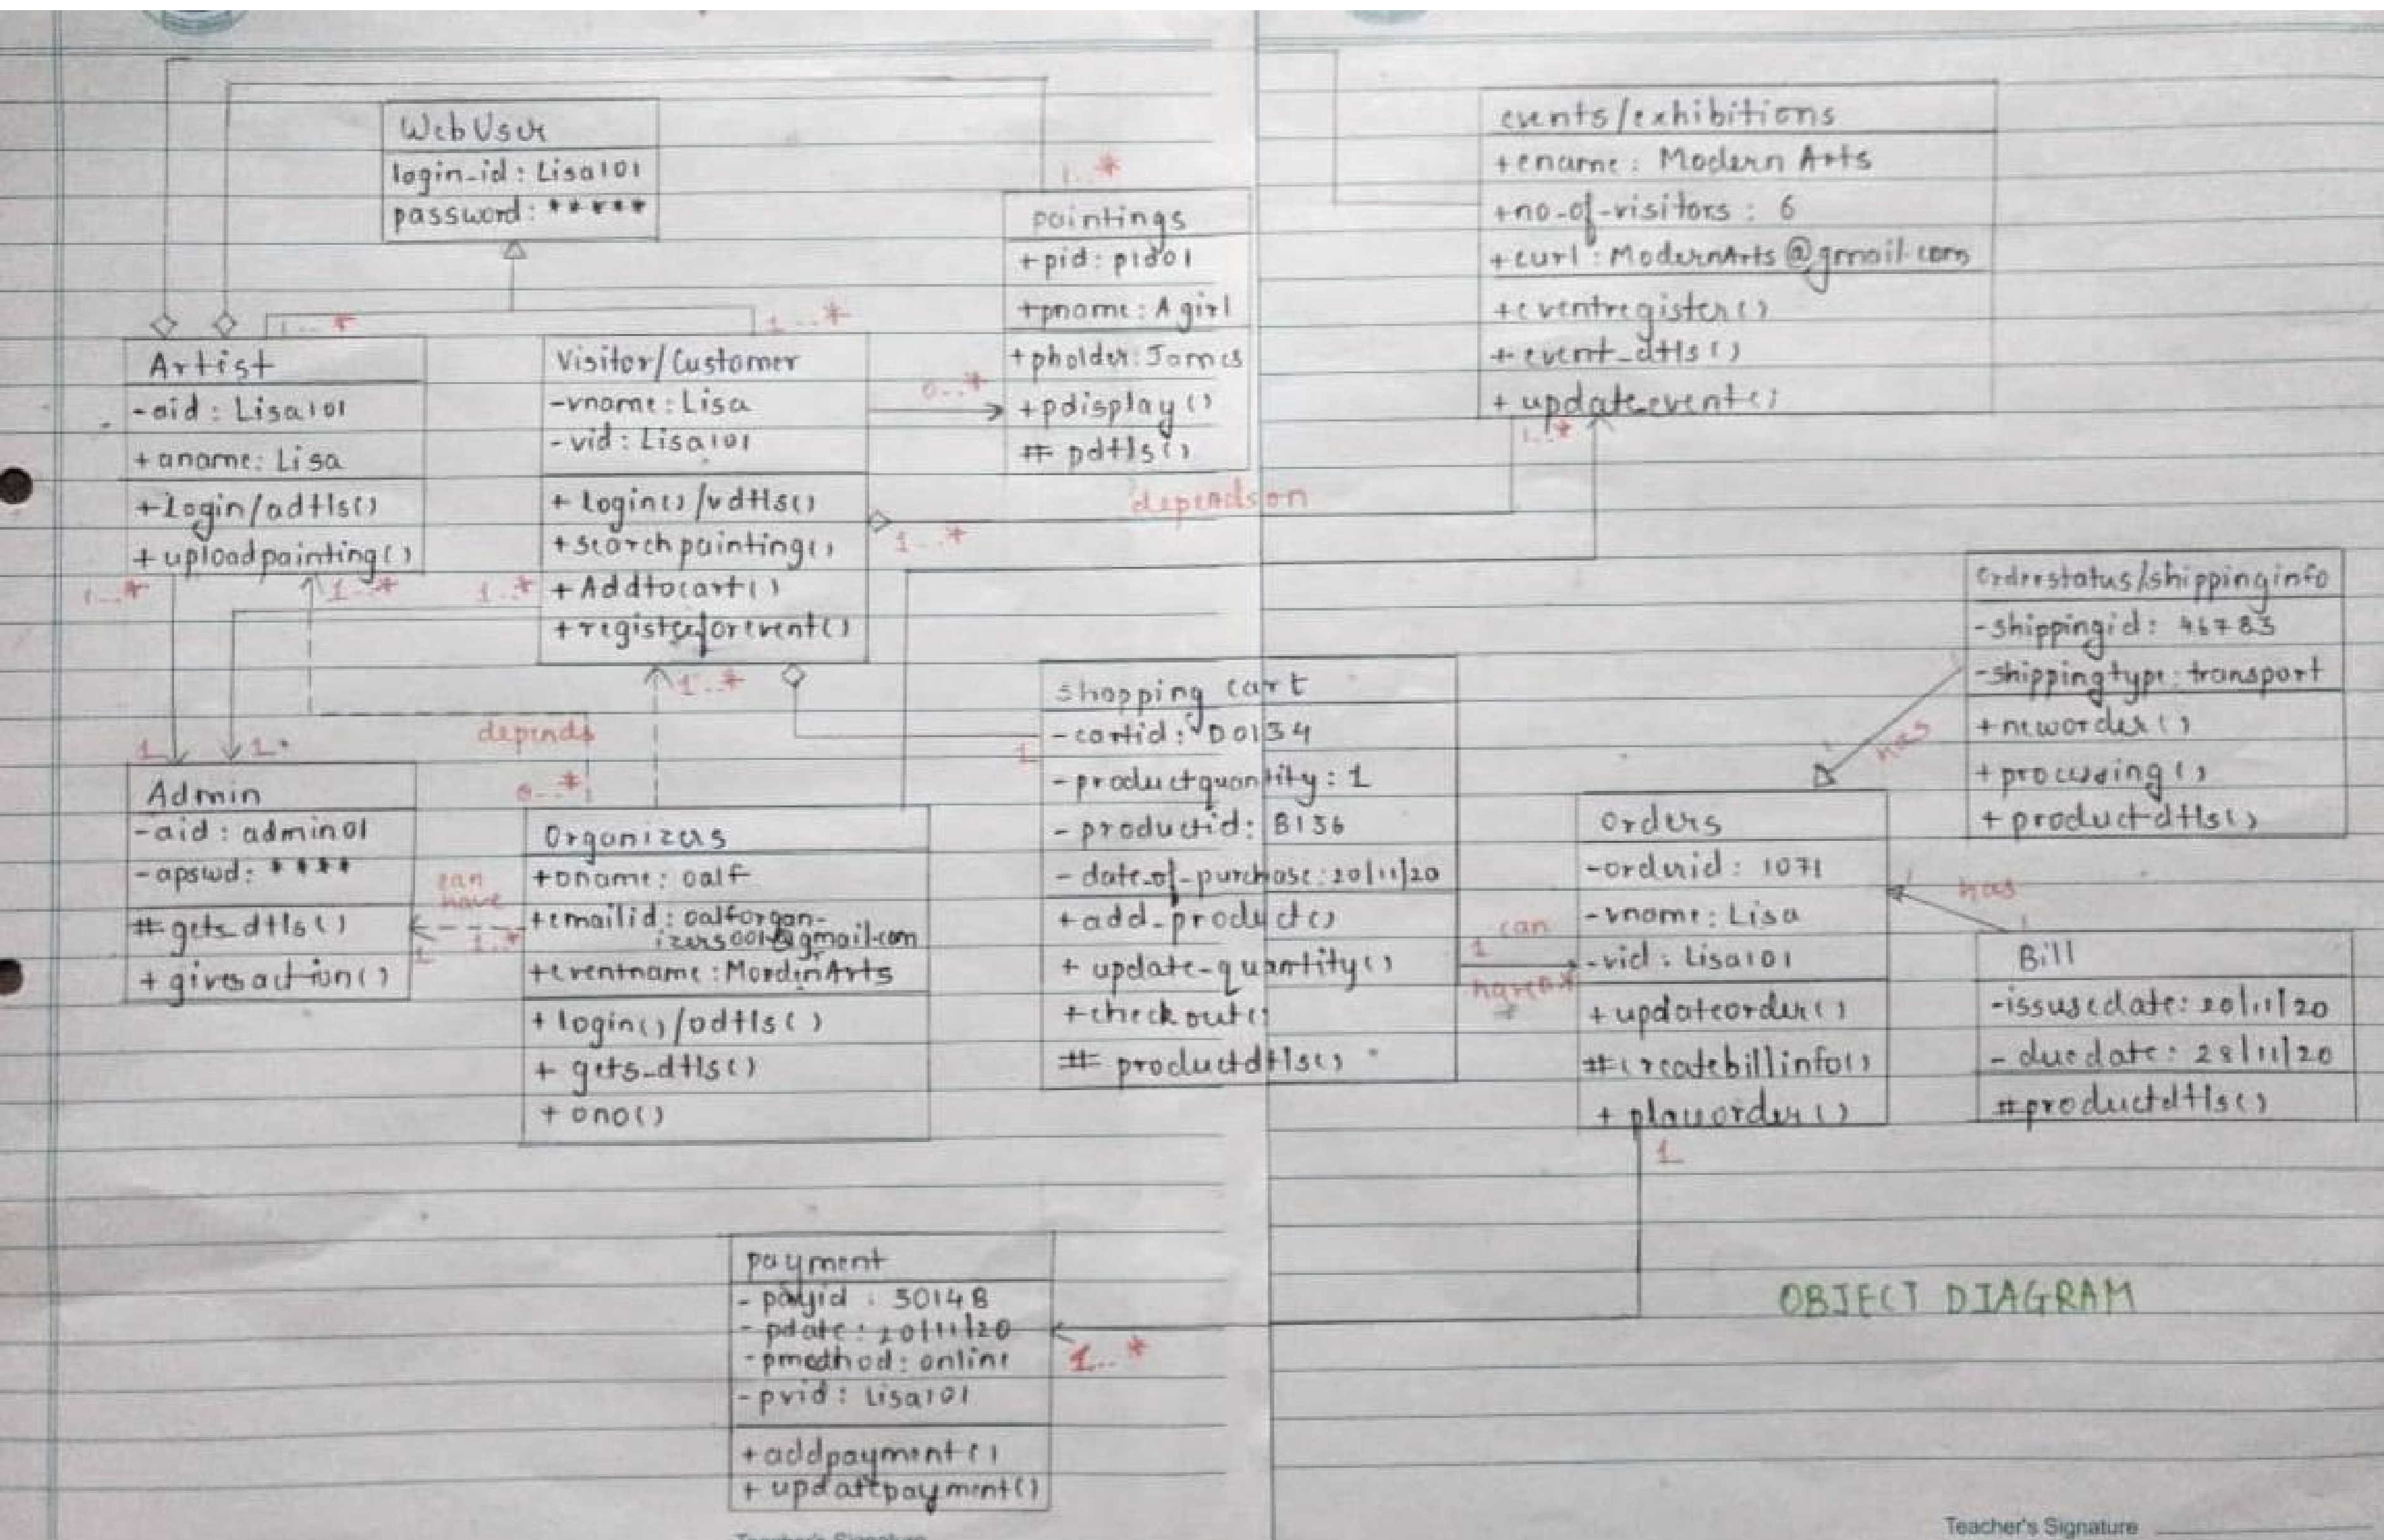 WebUser
login-id : Lisa101
password : *****
1..*
paintings
+pid: p1d01
+pname: A girl
+pholder: James
+pdisplay()
# pdtls()
events/exhibitions
+ename : Modern Arts
+no-of-visitors : 6
+eurl : ModernArts@gmail.com
+eventregister()
+event_dtls()
+ update_event()
1..*
1..*
1..*
Artist
-aid : Lisa101
+ aname: Lisa
+Login/adtls()
+uploadpainting()
Visitor/Customer
-vname : Lisa
-vid : Lisa101
+ Login()/vdtls()
+searchpainting()
+ Addtocart()
+registerforevent()
0..*
depends on
1..*
1..*
1..*
1..*
1..*
1
1
depends
0..*
Admin
-aid : admin01
-apswd : ****
# gets_dtls()
+ givesaction()
can
have
1..*
1
Organizers
+oname: oalf
+emailid: oalforgan-
izers001@gmail.com
+eventname : MordenArts
+ login()/odtls()
+ gets_dtls()
+ ono()
1
shopping cart
- cartid : D0134
- productquantity : 1
- productid: B136
- date_of_purchase: 20/11/20
+add_product()
+ update-quantity()
+checkout()
# productdtls()
1
can
have
orderstatus/shippinginfo
- shippingid: 46783
-shippingtype: transport
+neworder()
+processing()
+ productdtls()
has
orders
-orderid: 1071
-vname: Lisa
-vid : Lisa101
+updateorder()
#createbillinfo()
+ placeorder()
1
has
Bill
-issusedate: 20/11/20
- duedate: 28/11/20
#productdtls()
payment
- payid : 30148
- pdate : 20/11/20
-pmedhod: online
- pvid: Lisa101
+addpayment()
+ updatepayment()
1..*
OBJECT DIAGRAM
Teacher's Signature
Teacher's Signature